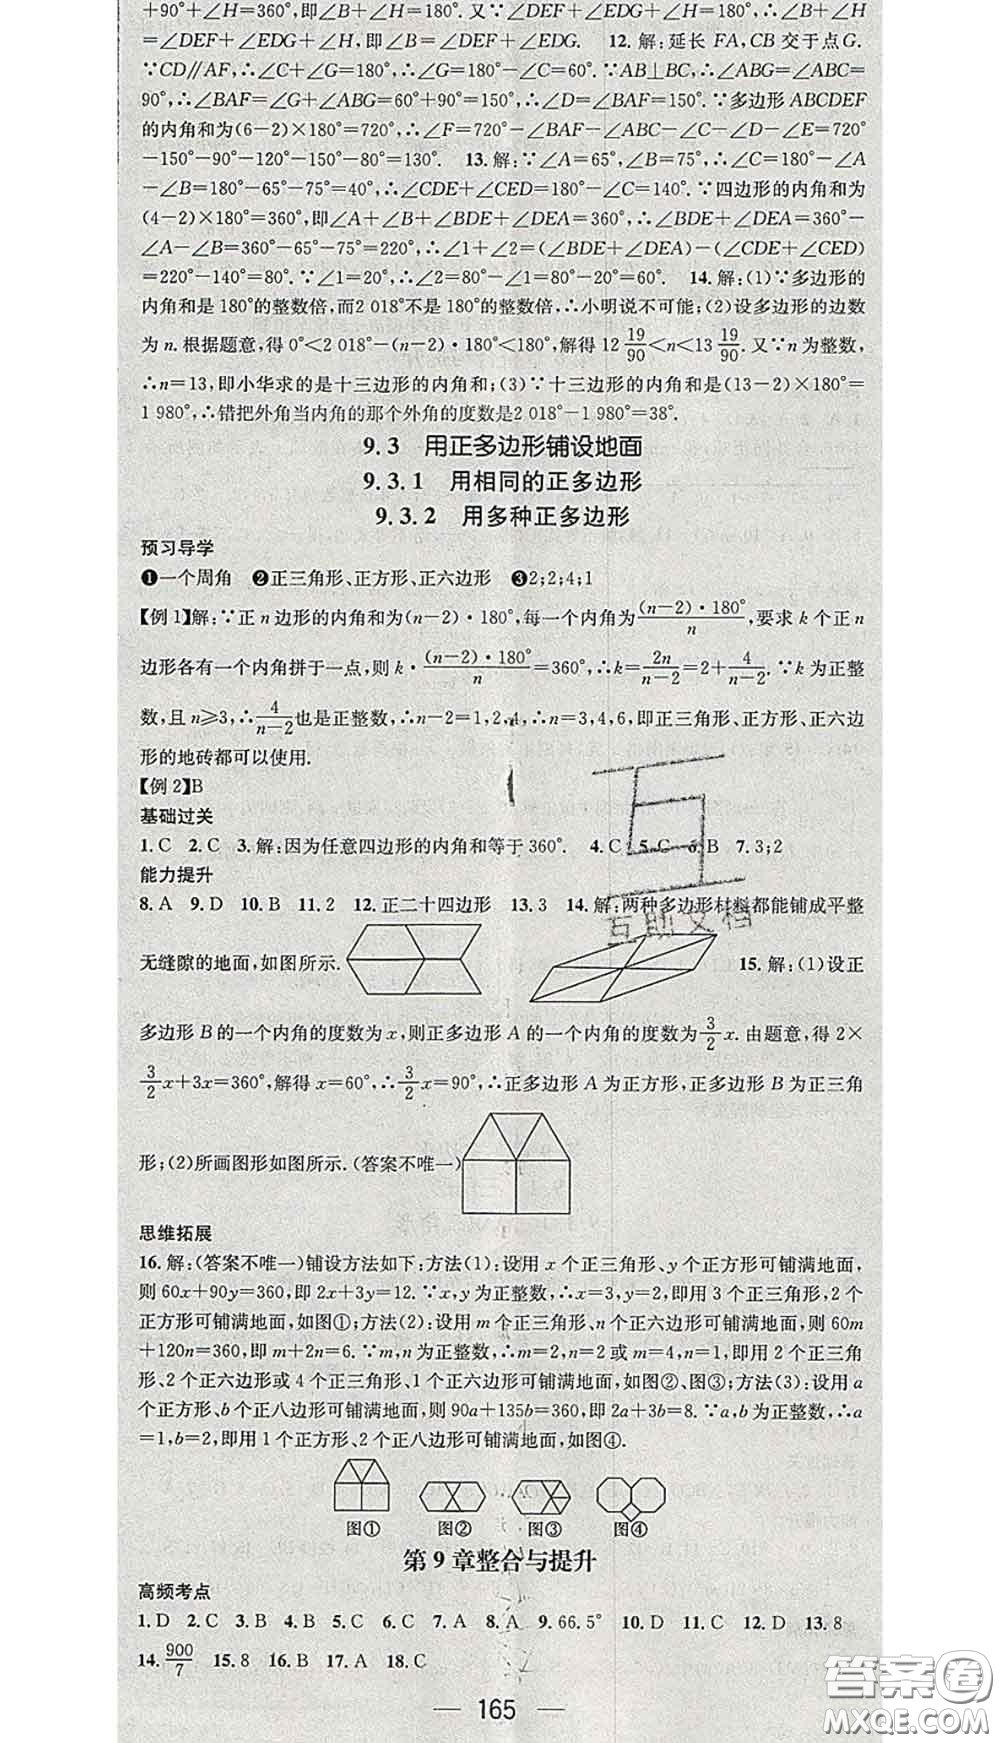 +90°+∠H=360°,即∠B+∠H=180°. 又∵∠DEF+∠EDG=180°,∴∠B+∠H
=∠DEF+∠EDG+∠H,即∠B=∠DEF+∠EDG. 12. 解:延长 FA,CB 交于点G.
∵CD∥AF,∴∠C+∠G=180°,∴∠G=180°-∠C=60°. ∵AB⊥BC,∴∠ABG=∠ABC=
90°,∴∠BAF=∠G+∠ABG=60°+90°=150°,∴∠D=∠BAF=150°. ∵多边形 ABCDEF
的内角和为(6-2)×180°=720°,∴∠F=720°-∠BAF-∠ABC-∠C-∠D-∠E=720°
-150°-90°-120°-150°-80°=130°. 13. 解:∵∠A=65°,∠B=75°,∴∠C=180°-∠A
-∠B=180°-65°-75°=40°,∴∠CDE+∠CED=180°-∠C=140°. ∵四边形的内角和为
(4-2)×180°=360°,即∠A+∠B+∠BDE+∠DEA=360°,∴∠BDE+∠DEA=360°-
∠A-∠B=360°-65°-75°=220°,∴∠1+∠2=(∠BDE+∠DEA)-(∠CDE+∠CED)
=220°-140°=80°. ∵∠1=20°,∴∠2=80°-∠1=80°-20°=60°. 14. 解:(1)∵多边形的
内角和是 180°的整数倍,而2 018°不是 180°的整数倍,∴小明说不可能;(2)设多边形的边数
为 n. 根据题意,得 0°<2 018°-(n-2)·180°<180°,解得 12 19/90<n<13 19/90. 又∵n 为整数,
∴n=13,即小华求的是十三边形的内角和;(3)∵十三边形的内角和是(13-2)×180°=
1 980°,∴错把外角当内角的那个外角的度数是2 018°-1 980°=38°.
9.3 用正多边形铺设地面
9.3.1 用相同的正多边形
9.3.2 用多种正多边形
预习导学
❶一个周角 ❷正三角形、正方形、正六边形 ❸2;2;4;1
【例 1】解:∵正 n 边形的内角和为(n-2)·180°,每一个内角为(n-2)·180°/n,要求 k 个正n
边形各有一个内角拼于一点,则 k·(n-2)·180°/n=360°,∴k=2n/(n-2)=2+4/(n-2). ∵k 为正整
数,且 n≥3,∴4/(n-2)也是正整数,∴n-2=1,2,4,∴n=3,4,6,即正三角形、正方形、正六边
形的地砖都可以使用.
【例 2】B
基础过关
1. C 2. C 3. 解:因为任意四边形的内角和等于 360°. 4. C 5. C 6. B 7. 3;2
能力提升
8. A 9. D 10. B 11. 2 12. 正二十四边形 13. 3 14. 解:两种多边形材料都能铺成平整
无缝隙的地面,如图所示. 15. 解:(1)设正
多边形 B 的一个内角的度数为 x,则正多边形 A 的一个内角的度数为3/2 x. 由题意,得 2×
3/2 x+3x=360°,解得 x=60°,∴3/2 x=90°,∴正多边形 A 为正方形,正多边形 B 为正三角
形;(2)所画图形如图所示.(答案不唯一)
思维拓展
16. 解:(答案不唯一)铺设方法如下:方法(1):设用 x 个正三角形、y 个正方形可铺满地面,
则 60x+90y=360,即 2x+3y=12. ∵x,y为正整数,∴x=3,y=2,即用 3 个正三角形,2个
正方形可铺满地面,如图①;方法(2):设用 m个正三角形、n 个正六边形可铺满地面,则 60m
+120n=360,即 m+2n=6. ∵m,n 为正整数,∴m=2,n=2 或 m=4,n=1,即用 2个正三角
形、2 个正六边形或 4 个正三角形、1 个正六边形可铺满地面,如图②、图③;方法(3):设用 a
个正方形、b 个正八边形可铺满地面,则 90a+135b=360,即 2a+3b=8. ∵a,b 为正整数,∴a
=1,b=2,即用 1 个正方形、2 个正八边形可铺满地面,如图④.
图① 图② 图③ 图④
第 9 章整合与提升
高频考点
1. D 2. C 3. B 4. B 5. C 6. C 7. A 8. A 9. 66.5° 10. D 11. C 12. D 13. 8
14. 900/7 15. 8 16. B 17. A 18. C
165
互助文档
答案圈
MXQE.COM